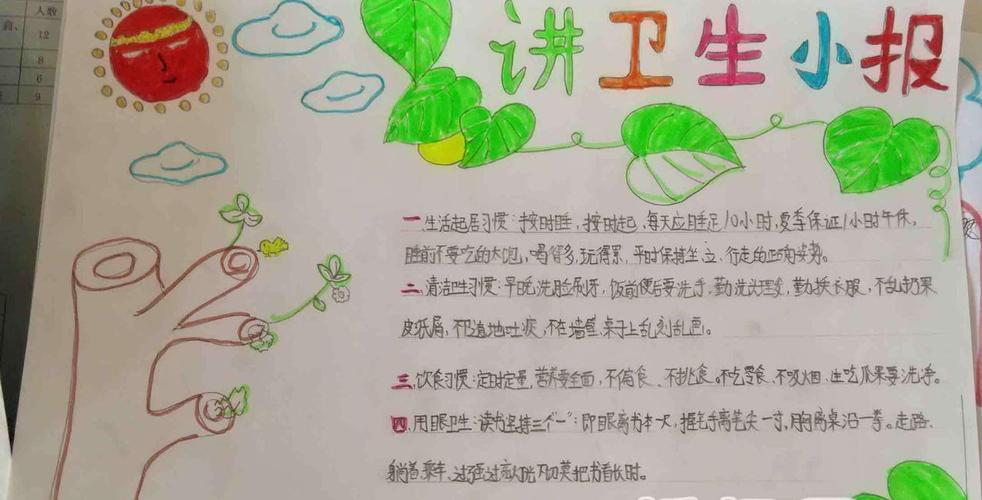 讲卫生小报
人数
12
8
6
9
一.生活起居习惯:按时睡,按时起,每天应睡足10小时,夏季保证1小时午休,
睡前不要吃的太饱,喝得多,玩得累,平时保持坐、立、行走的正确姿势。
二.清洁卫生习惯:早晚洗脸刷牙,饭前便后要洗手,勤洗头理发,勤换衣服,不乱扔果
皮纸屑,不随地吐痰,不在墙壁桌子上乱刻乱画。
三.饮食习惯:定时定量,营养要全面,不偏食、不挑食。不吃零食、不吸烟、生吃瓜果要洗净。
四.用眼卫生:读书坚持三个"一":即眼离书本一尺,握笔手离笔尖一寸,胸离桌沿一拳。走路、
躺着、乘车、过强过高光线下切莫把书看长时。